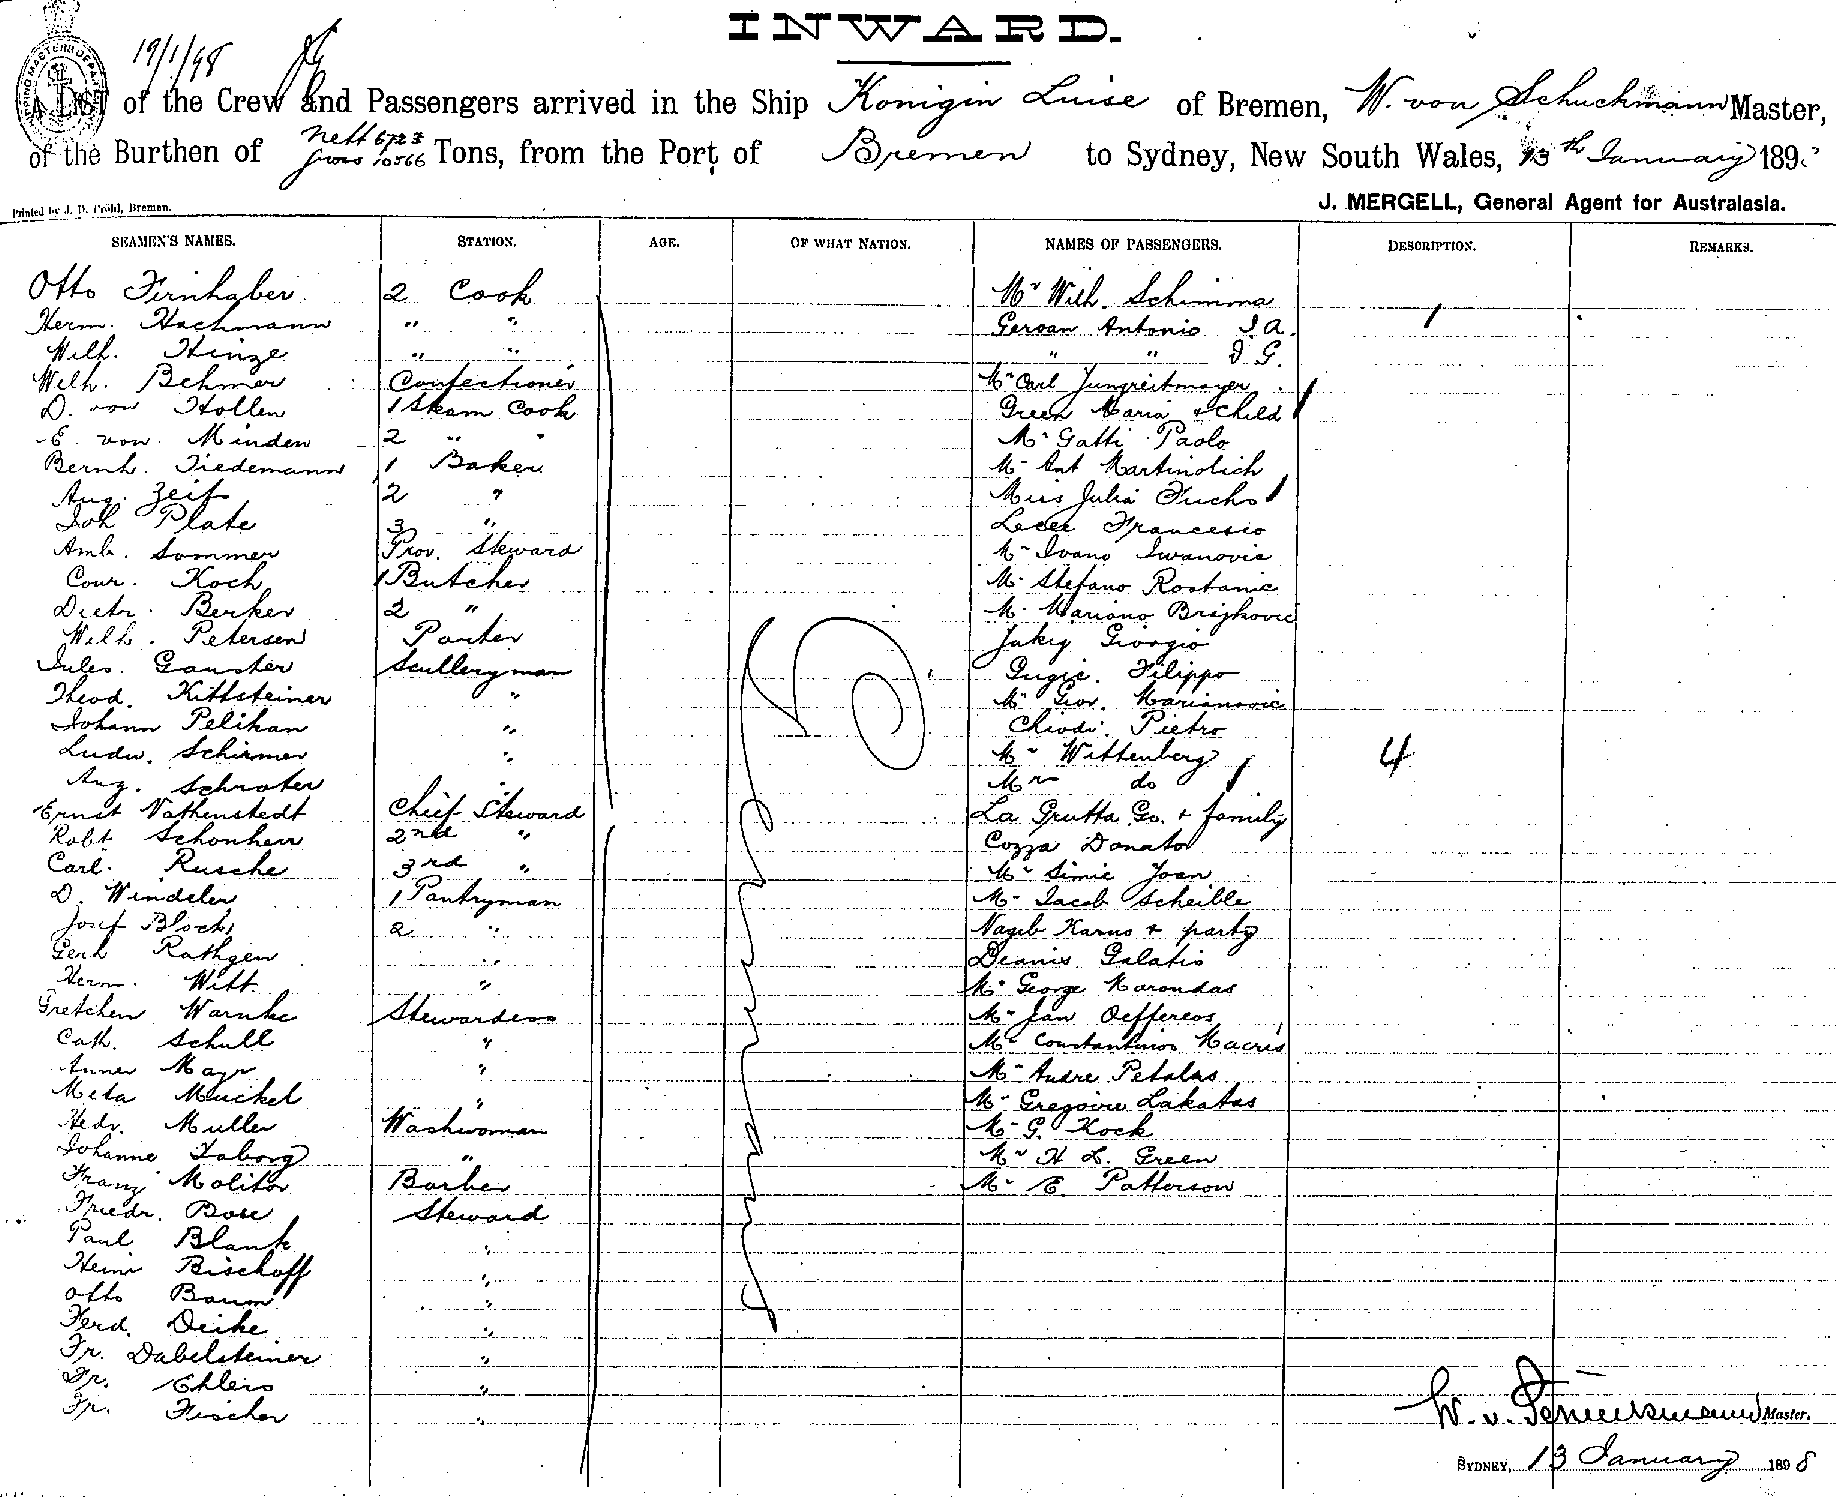 INWARD.
19/1/98
A LIST of the Crew and Passengers arrived in the Ship Konigin Luise of Bremen, W. von Schuckmann Master,
of the Burthen of Nett 6723 Gross 10566 Tons, from the Port of Bremen to Sydney, New South Wales, 13th January 189
Printed by J. D. Pröhl, Bremen.
J. MERGELL, General Agent for Australasia.
SEAMEN'S NAMES. STATION. AGE. OF WHAT NATION. NAMES OF PASSENGERS. DESCRIPTION. REMARKS.
Otto Firnhaber 2 Cook Mr Wilh. Schimma
Herm. Hachmann " " Geroan Antonio I. A. 1
Wilh. Hinze " " " " D G.
Wilh. Behmer Confectioner Mr Carl Jungreitmayer
D. von Hollen 1 Steam Cook Green Maria + Child
E. von Minden 2 " " Mr Gatti Paolo
Bernh. Tiedemann 1 Baker Mr Ant Martinolich
Aug. Zeit 2 " Miss Julia Fuchs
Joh Plate 3 " Lecce Francesco
Amb. Sommer Prov. Steward Mr Ivano Iwanovic
Conr. Koch 1 Butcher Mr Stefano Rostanic
Dietr. Berker 2 " Mr Mariono Brijkovic
Wilh. Petersen Porter Jakiy Giorgio
Jules. Gauster Sculleryman Gugic. Filippo
Theod. Kittsteiner " Mr Giov. Marianovic
Johann Pelikan " Chiodi Pietro
Ludw. Schirmer " Mr Wittenberg 4
Aug. Schroter " Mrs do
Ernst Vathenstedt Chief Steward La Grutta Go. + family
Robt Schonherr 2nd " Cozza Donato
Carl. Rusche 3rd " Mr Simic Joan
D. Windeler 1 Pantryman Mr Jacob Scheible
Josef Bloch 2 " Nageb Karus + party
Gerh Rathgen " Dianis Galatis
Herm. Witt. " Mr George Karondas
Gretchen Warnke Stewardess Mr Jan Oeffereos
Cath. Schull " Mr Constantinos Macris
Anner Mayr " Mr Andre Petalas
Meta Muckel " Mr Gregoire Lakatas
Hedr. Muller Washwoman Mr G. Kock
Johanne Taborg " Mr H L. Green
Franz Molitor Barber Mr E. Patterson
Friedr. Bose Steward
Paul Blank "
Heinr Bischoff "
Otto Baum "
Ferd. Deike "
Fr. Dabelsteiner "
Fr. Ehlers "
Fr. Fischer "
W. v. Schuckmann Master.
SYDNEY, 13 January 1898